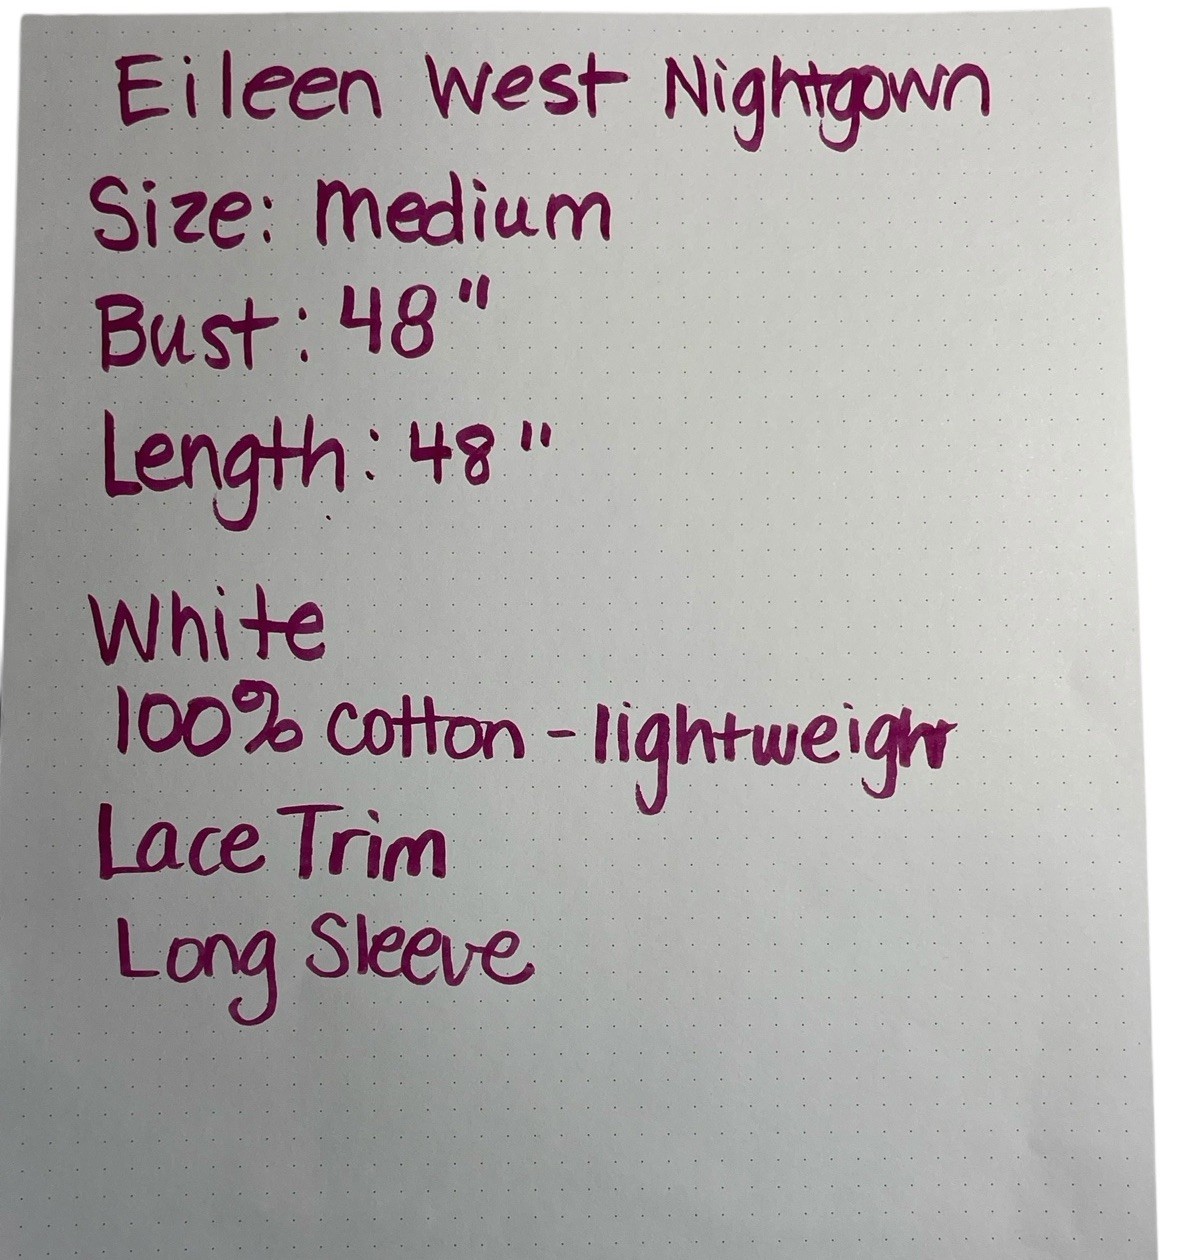 Eileen West Nightgown
Size: medium
Bust: 48"
Length: 48"
White
100% cotton - lightweight
Lace Trim
Long Sleeve